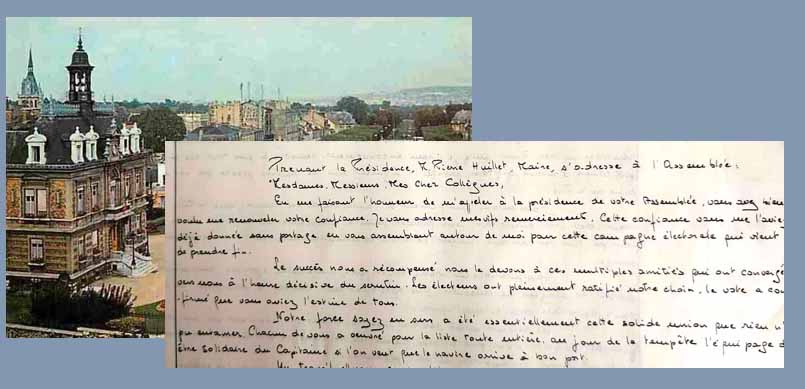 Prenant la Présidence, M. Pierre Huillet, Maire, s'adresse à l'Assemblée :
Mesdames, Messieurs, Mes Cher Collègues,
En me faisant l'honneur de m'appeler à la présidence de votre Assemblée, vous avez bien
voulu me renouveler votre confiance. Je vous adresse mes vifs remerciements. Cette confiance vous me l'aviez
déjà donnée sans partage en vous assemblant autour de moi pour cette campagne électorale qui vient
de prendre fin.
Le succès nous a récompensé nous le devons à ces multiples amitiés qui ont convergé
vers nous à l'heure décisive du scrutin. Les électeurs ont pleinement ratifié notre choix, le vote a con
firmé que vous aviez l'estime de tous.
Notre force soyez en surs a été essentiellement cette solide union que rien n'
pu entamer. Chacun de vous a oeuvré pour la liste toute entière, au jour de la tempête l'équipage d
être solidaire du Capitaine si l'on veut que le navire arrive à bon port.